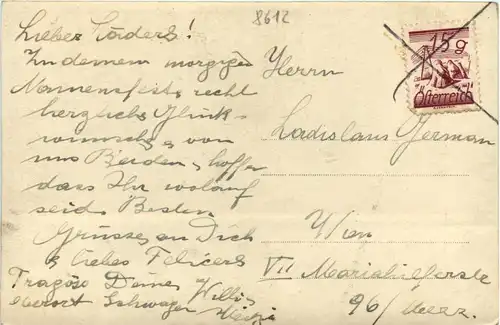 8612
Lieber Láders!
Zu deinem morgigen
Namensfeste recht
herzliche Glück-
wünsche von
uns Beiden, hoffen
dass Ihr wolauf
seid. Besten
Grüsse an Dich
& liebes Felicerl
Deine
Schwager Willi
Tragöss
oberort
15 g
Österreich
Herrn
Ladislaus German
Wien
VII Mariahilferstr
96/